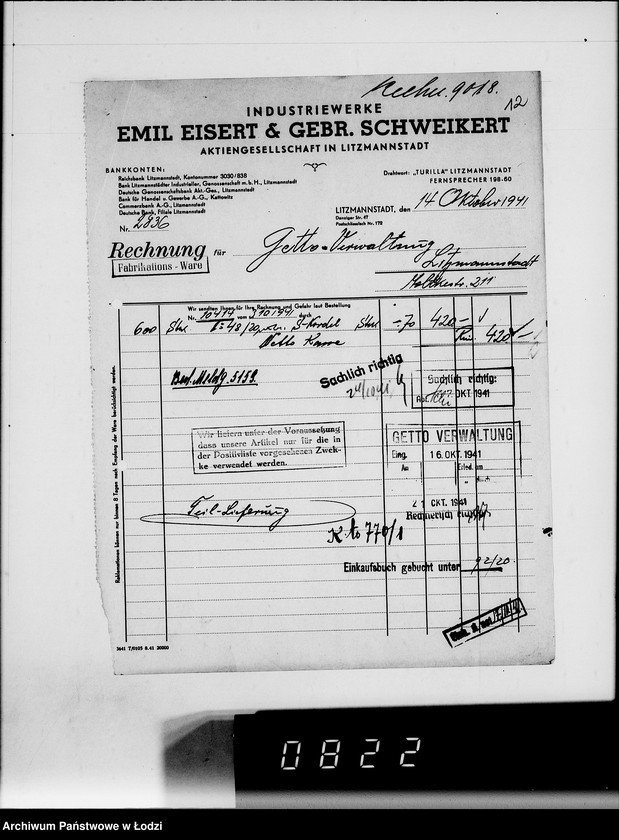 Rechn. 9018.
12
INDUSTRIEWERKE
EMIL EISERT & GEBR. SCHWEIKERT
AKTIENGESELLSCHAFT IN LITZMANNSTADT
BANKKONTEN:
Reichsbank Litzmannstadt, Kontonummer 3030/838
Bank Litzmannstädter Industrieller, Genossenschaft m. b. H., Litzmannstadt
Deutsche Genossenschaftsbank Akt.-Ges., Litzmannstadt
Bank für Handel u. Gewerbe A.-G., Kattowitz
Commerzbank A.-G., Litzmannstadt
Deutsche Bank, Filiale Litzmannstadt
Drahtwort: „TURILLA" LITZMANNSTADT
FERNSPRECHER 198-60
LITZMANNSTADT, den 14 Oktober 1941
Danziger Str. 47
Postschliessfach Nr. 172
Nr. 2836
Rechnung für Getto-Verwaltung
Fabrikations-Ware
Litzmannstadt
Moltkestr. 211
Wir sendten Ihnen für Ihre Rechnung und Gefahr laut Bestellung
Nr. 10414 vom durch
600 Stck 48/20 Kordel Stck -70 420.-
Netto Kasse Rm. 420.-
Best. Meldg. 5159.
Sachlich richtig
Sachlich richtig:
OKT 1941
Wir liefern unter der Voraussetzung
dass unsere Artikel nur für die in
der Positivliste vorgesehenen Zwek-
ke verwendet werden.
GETTO VERWALTUNG
Eing. 16. OKT. 1941
An Erled. am
Teil-Lieferung
21. OKT. 1941
Rechnerisch
K. to 770/1
Einkaufsbuch gebucht unter 92/20.
Reklamationen können nur binnen 8 Tagen nach Empfang der Ware berücksichtigt werden.
3641 T/0105 6.41 20000
0822
Archiwum Państwowe w Łodzi